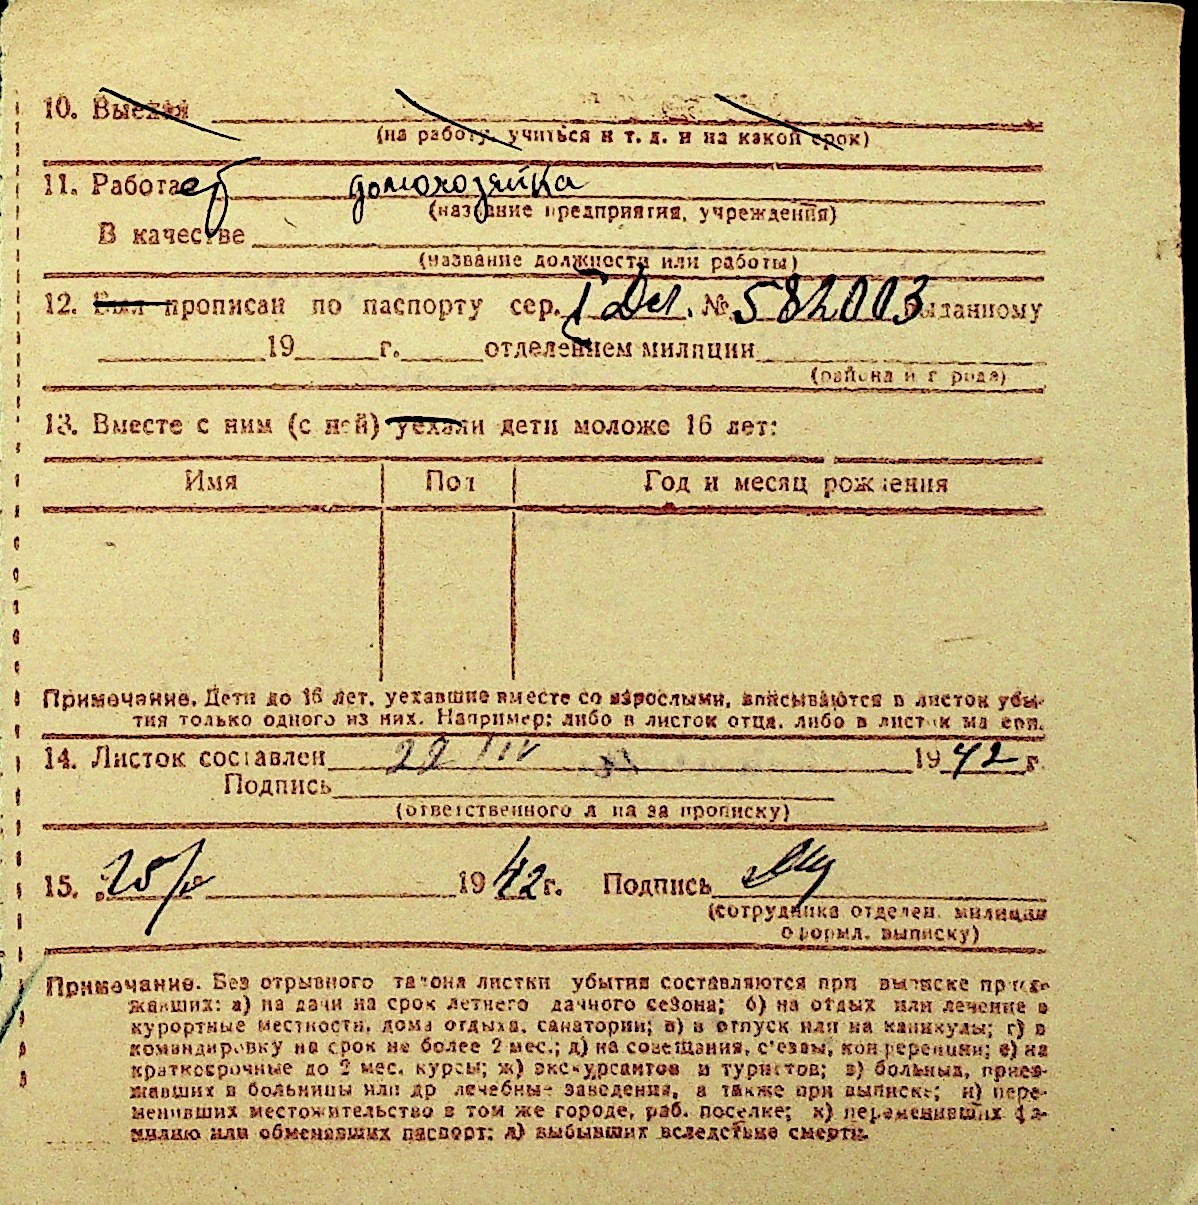 10. Выехал
(на работу, учиться и т. д. и на какой срок)
11. Работает домохозяйка
(название предприятия, учреждения)
В качестве
(название должности или работы)
12. Был прописан по паспорту сер. № 582003 выданному
19 г. отделением милиции
(района и города)
13. Вместе с ним (с ней) уехали дети моложе 16 лет:
Имя Пол Год и месяц рождения
Примечание. Дети до 16 лет, уехавшие вместе со взрослыми, вписываются в листок убы-
тия только одного из них. Например: либо в листок отца, либо в листок матери.
14. Листок составлен 22/IV 1942 г.
Подпись
(ответственного лица за прописку)
15. 25/ 1942 г. Подпись
(сотрудника отделен. милиции
оформл. выписку)
Примечание. Без отрывного талона листки убытия составляются при выписке приез-
жавших: а) на дачи на срок летнего дачного сезона; б) на отдых или лечение в
курортные местности, дома отдыха, санатории; в) в отпуск или на каникулы; г) в
командировку на срок не более 2 мес.; д) на совещания, с'езды, конференции; е) на
краткосрочные до 2 мес. курсы; ж) экскурсантов и туристов; з) больных, приез-
жавших в больницы или др лечебные заведения, а также при выписке; и) пере-
менивших местожительство в том же городе, раб. поселке; к) переменивших фа-
милию или обменявших паспорт; л) выбывших вследствие смерти.